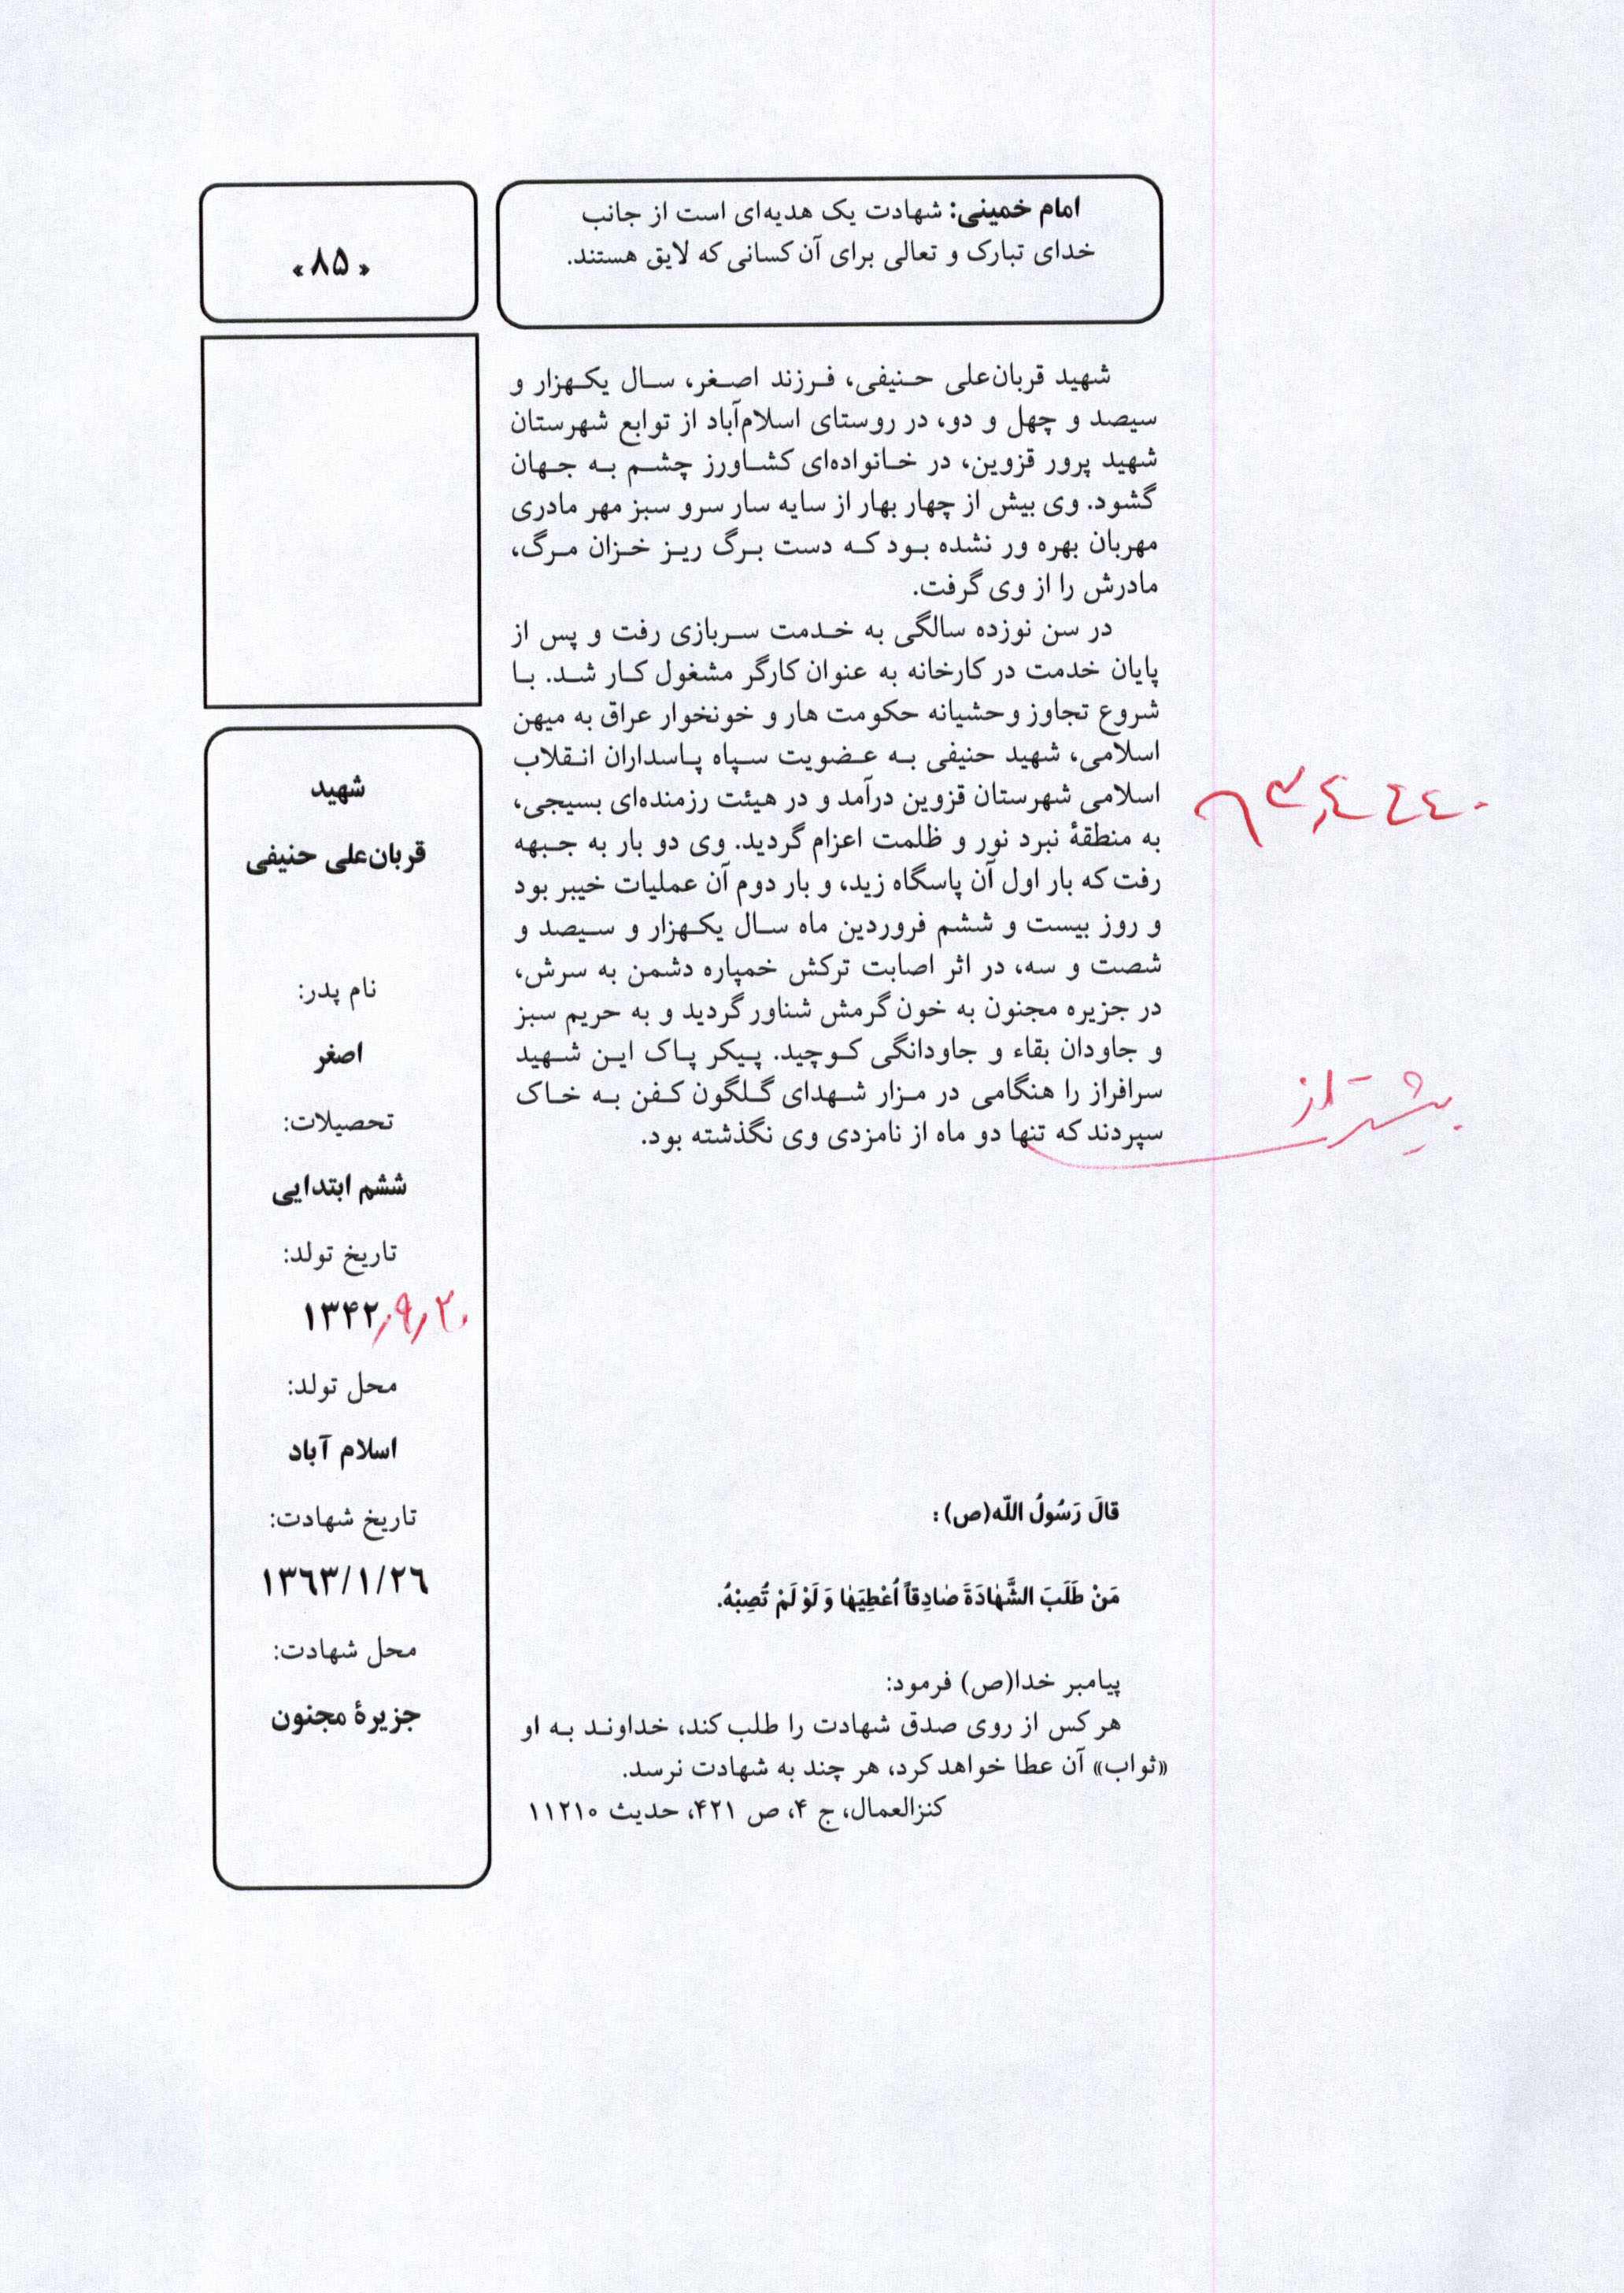 امام خمینی: شهادت یک هدیه‌ای است از جانب
خدای تبارک و تعالی برای آن کسانی که لایق هستند.
«۸۵»
شهید قربان‌علی حنیفی، فرزند اصغر، سال یکهزار و
سیصد و چهل و دو، در روستای اسلام‌آباد از توابع شهرستان
شهید پرور قزوین، در خانواده‌ای کشاورز چشم به جهان
گشود. وی بیش از چهار بهار از سایه سار سرو سبز مهر مادری
مهربان بهره ور نشده بود که دست برگ ریز خزان مرگ،
مادرش را از وی گرفت.
در سن نوزده سالگی به خدمت سربازی رفت و پس از
پایان خدمت در کارخانه به عنوان کارگر مشغول کار شد. با
شروع تجاوز وحشیانه حکومت هار و خونخوار عراق به میهن
اسلامی، شهید حنیفی به عضویت سپاه پاسداران انقلاب
اسلامی شهرستان قزوین درآمد و در هیئت رزمنده‌ای بسیجی،
به منطقهٔ نبرد نور و ظلمت اعزام گردید. وی دو بار به جبهه
رفت که بار اول آن پاسگاه زید، و بار دوم آن عملیات خیبر بود
و روز بیست و ششم فروردین ماه سال یکهزار و سیصد و
شصت و سه، در اثر اصابت ترکش خمپاره دشمن به سرش،
در جزیره مجنون به خون گرمش شناور گردید و به حریم سبز
و جاودان بقاء و جاودانگی کوچید. پیکر پاک این شهید
سرافراز را هنگامی در مزار شهدای گلگون کفن به خاک
سپردند که تنها دو ماه از نامزدی وی نگذشته بود.
بیشتر از
شهید
قربان‌علی حنیفی
نام پدر:
اصغر
تحصیلات:
ششم ابتدایی
تاریخ تولد:
۱۳۴۲٫۹٫۲۰
محل تولد:
اسلام آباد
تاریخ شهادت:
۱۳۶۳/۱/۲۶
محل شهادت:
جزیرهٔ مجنون
قالَ رَسُولُ اللّه(ص) :
مَنْ طَلَبَ الشَّهادَةَ صادِقاً اُعْطِیَها وَ لَوْ لَمْ تُصِبْهُ.
پیامبر خدا(ص) فرمود:
هر کس از روی صدق شهادت را طلب کند، خداوند به او
«ثواب» آن عطا خواهد کرد، هر چند به شهادت نرسد.
کنزالعمال، ج ۴، ص ۴۲۱، حدیث ۱۱۲۱۰